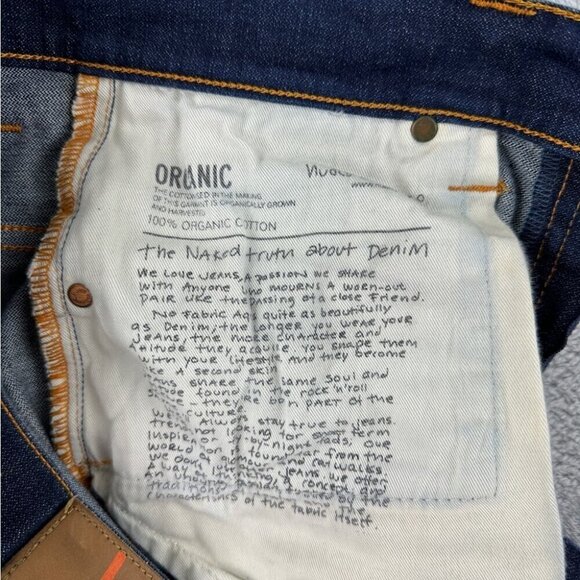 ORGANIC
THE COTTON USED IN THE MAKING
OF THIS GARMENT IS ORGANICALLY GROWN
AND HARVESTED
100% ORGANIC COTTON
The Naked truth about Denim
We Love Jeans, A passion we share
with Anyone who mourns a worn-out
pair like the passing of a close friend.
No Fabric Ages quite as beautifully
as Denim, the longer you wear your
jeans, the more character and
attitude they acquire. You shape them
with your lifestyle and they become
like a second skin.
Jeans share the same soul and
found in the rock 'n' roll
they've been part of the
culture
Always stay true to jeans.
not looking for short term
by night fads, our
world found from the
catwalks
Jeans. we offer
concept and
traditions by the
characteristics of the fabric itself.